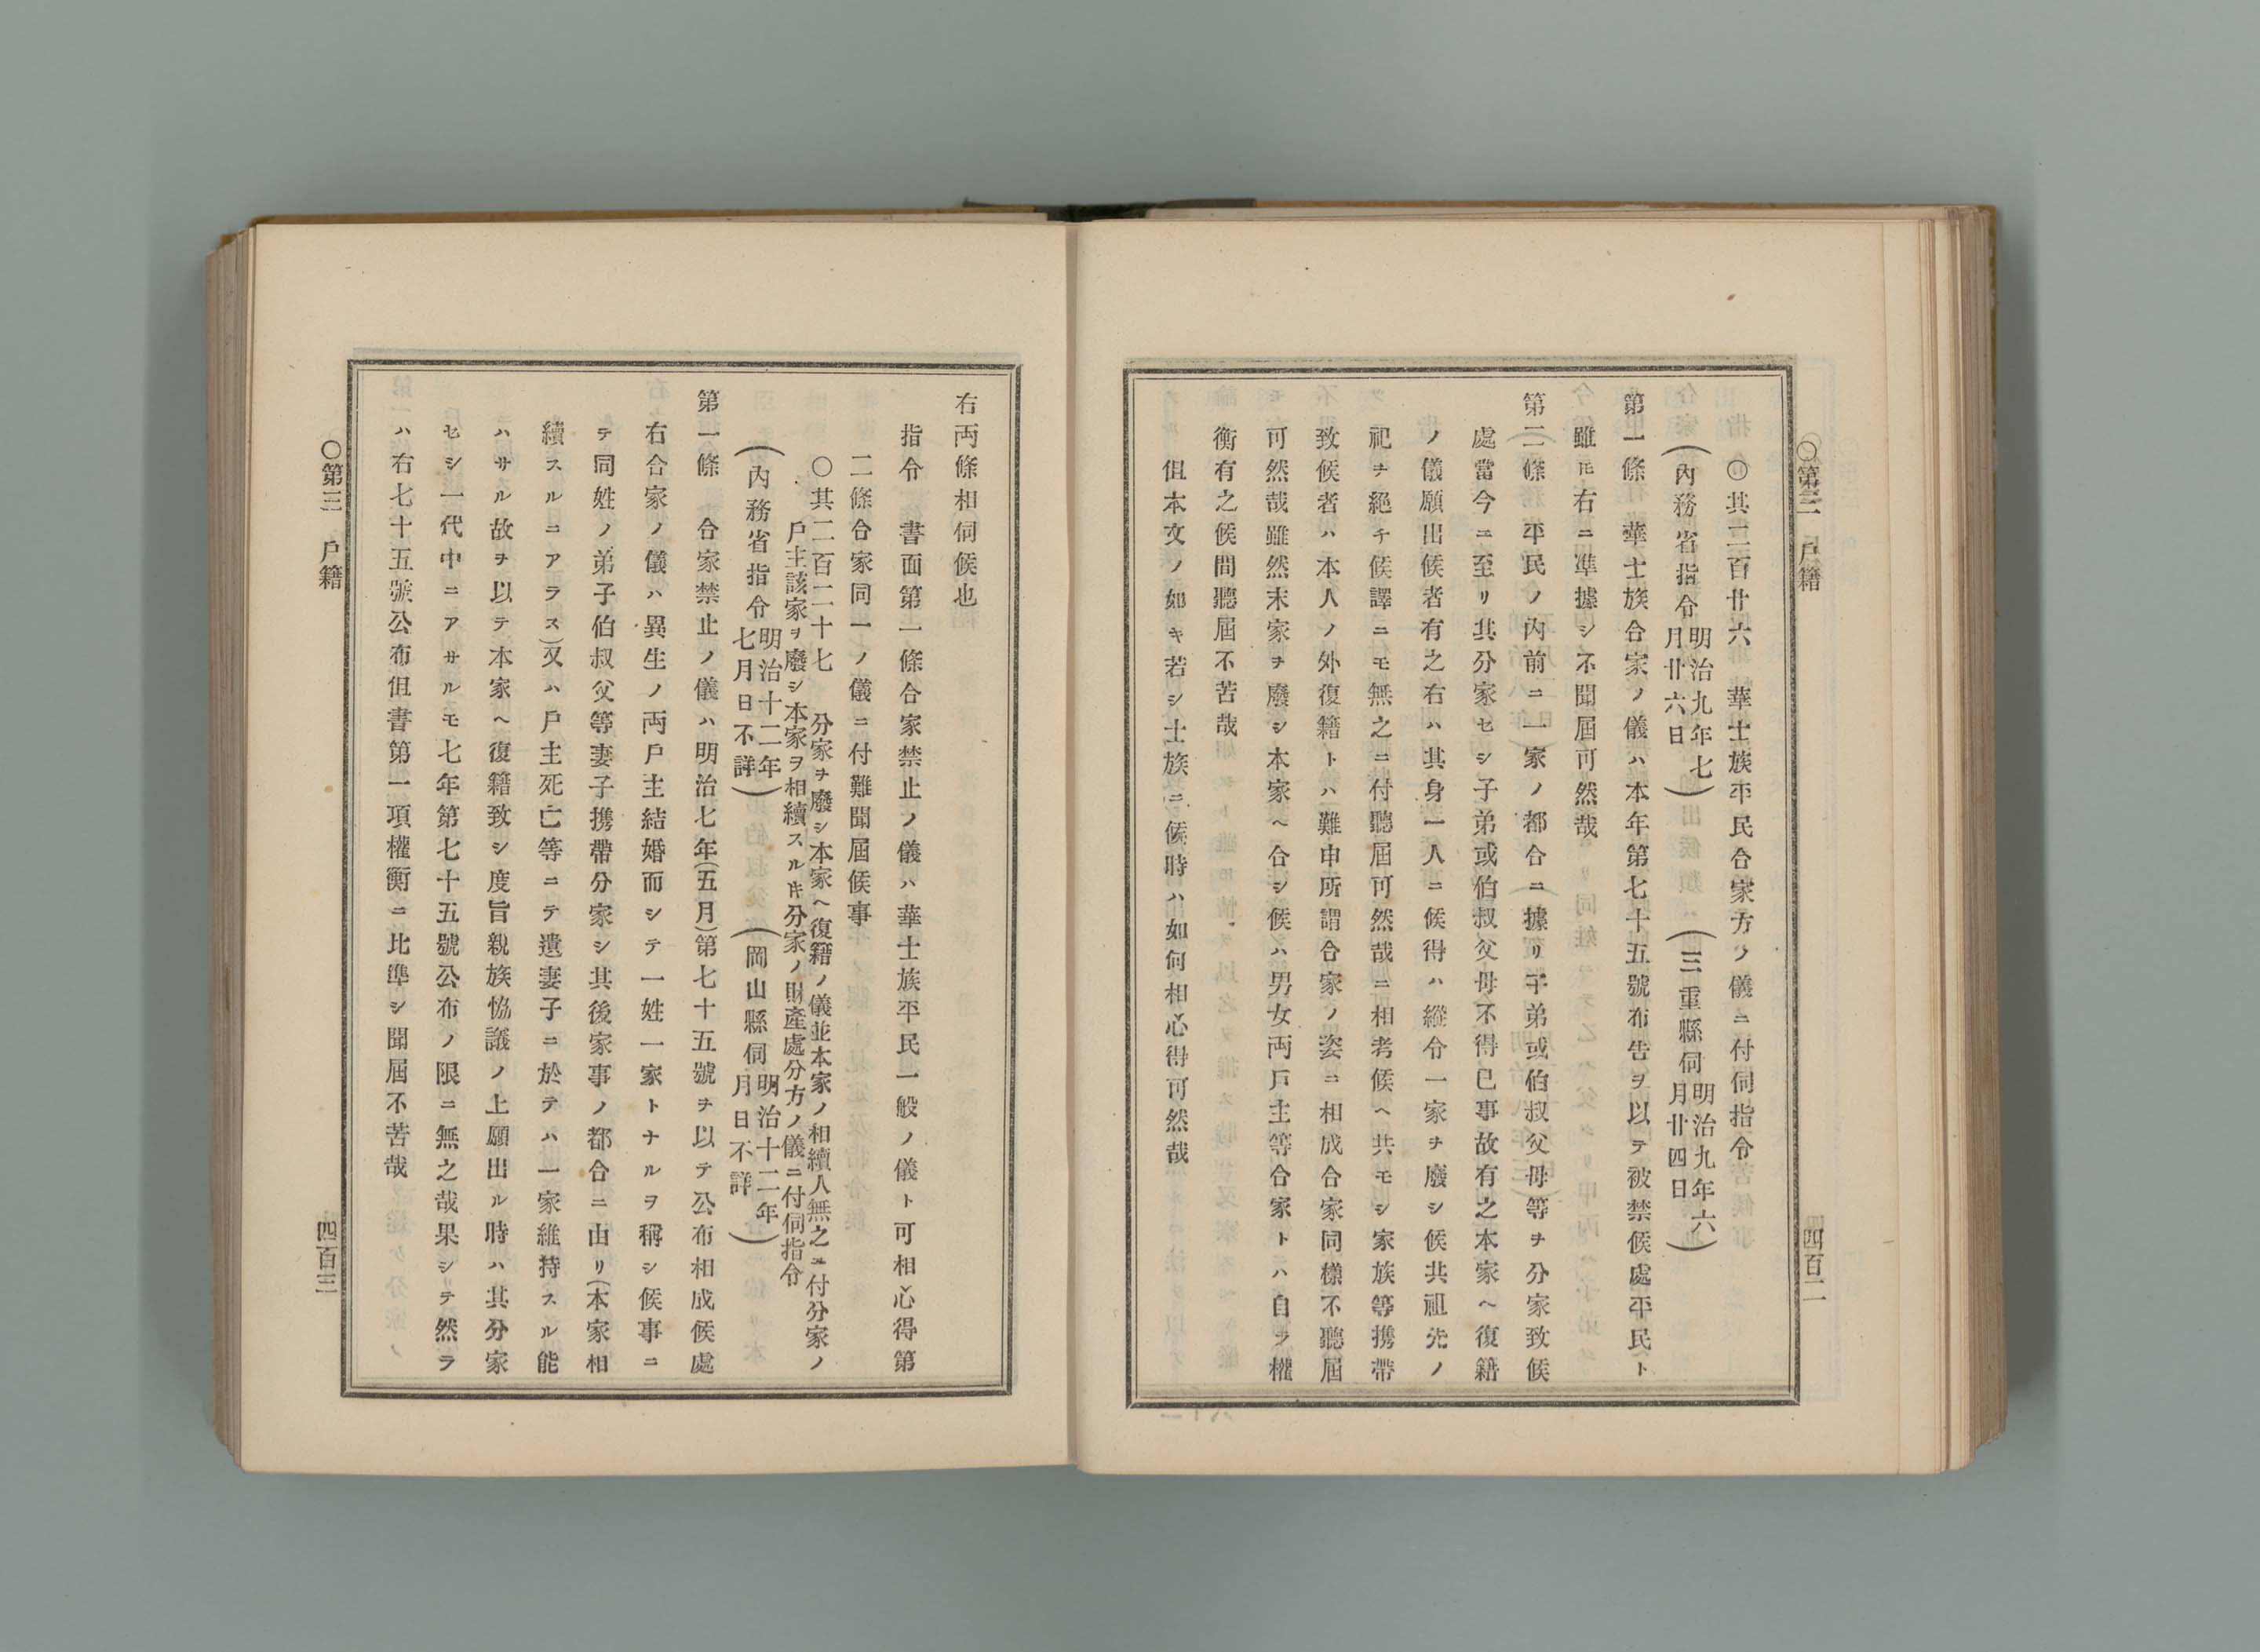 ○第三　戸籍　四百二
○其二百廿六　華士族平民合家方ノ儀ニ付伺指令
（内務省指令明治九年七月廿六日）（三重縣伺明治九年六月廿四日）
第一條　華士族合家ノ儀ハ本年第七十五號布告ヲ以テ被禁候處平民ト
雖𪜈右ニ準據シ不聞屆可然哉
第二條　平民ノ內前ニ一家ノ都合ニ據リ子弟或伯叔父母等ヲ分家致候
處當今ニ至リ其分家セシ子弟或伯叔父母不得已事故有之本家ヘ復籍
ノ儀願出候者有之右ハ其身一人ニ候得ハ縱令一家ヲ廢シ候共祖先ノ
祀ヲ絕チ候譯ニモ無之ニ付聽屆可然哉ニ相考候ヘ共モシ家族等携帶
致候者ハ本人ノ外復籍トハ難申所謂合家ノ姿ニ相成合家同樣不聽屆
可然哉雖然末家ヲ廢シ本家ヘ合シ候ハ男女両戸主等合家トハ自ラ權
衡有之候間聽屆不苦哉
但本文ノ如キ若シ士族ニ候時ハ如何相心得可然哉
右両條相伺候也
指令　書面第一條合家禁止ノ儀ハ華士族平民一般ノ儀ト可相心得第
二條合家同一ノ儀ニ付難聞屆候事
○其二百二十七　分家ヲ廢シ本家ヘ復籍ノ儀並本家ノ相續人無之ニ付分家ノ
戸主該家ヲ廢シ本家ヲ相續スル𪜈分家ノ財產處分方ノ儀ニ付伺指令
（內務省指令明治十二年七月日不詳）（岡山縣伺明治十二年月日不詳）
第一條　合家禁止ノ儀ハ明治七年（五月）第七十五號ヲ以テ公布相成候處
右合家ノ儀ハ異生ノ両戸主結婚而シテ一姓一家トナルヲ稱シ候事ニ
テ同姓ノ弟子伯叔父等妻子携帶分家シ其後家事ノ都合ニ由リ（本家相
續スルニアラス）又ハ戸主死亡等ニテ遺妻子ニ於テハ一家維持スル能
ハサル故ヲ以テ本家ヘ復籍致シ度旨親族恊議ノ上願出ル時ハ其分家
セシ一代中ニアサルモ七年第七十五號公布ノ限ニ無之哉果シテ然ラ
ハ右七十五號公布但書第一項權衡ニ比準シ聞屆不苦哉
○第三　戸籍　四百三